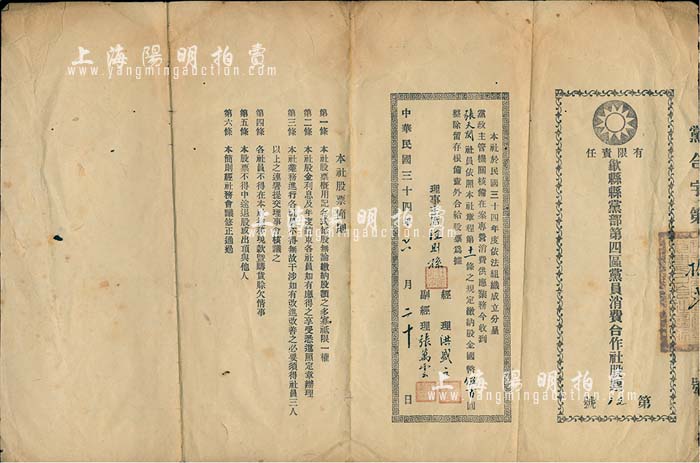 黨合字第
號
有限責任
歙縣縣黨部第四區黨員消費合作社股票
第
號
本社於民國三十四年度依法組織成立分呈
黨政主管機關核備在案專營消費供應業務今收到
社員依照本社章程第十一條之規定繳納股金國幣伍百圓
整除留存根備查外合給股票爲據
理事
經理洪
副經理張萬
中華民國三十四年六月二十日
本社股票簡則
第一條 本社股票概用記名式每股無論繳納股額之多寡祇限一權
第二條 本社股金利息及年度分東各社員如有應得之享受悉遵照定章辦理
第三條 本社業務進行各社員不得無故干涉如有改進改善之必要須得社員三人
以上之連署提交理事會核議之
第四條 各社員不得在本社移借現款暨購貨賒欠情事
第五條 本股票不得中途退股或出頂與他人
第六條 本簡則經社務會議修正通過
上海陽明拍賣
www.yangmingauction.com
上海陽明拍賣
www.yangmingauction.com
上海陽明拍賣
www.yangmingauction.com